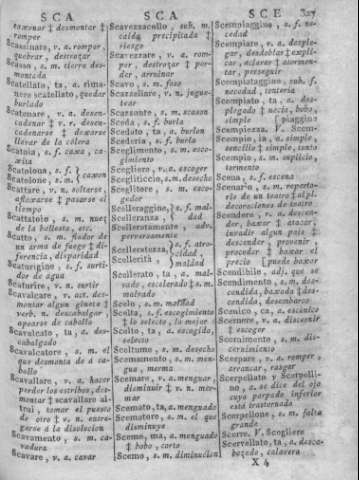 S C A
S C A
S C E
327
Scassinare, v. a. romper,
quebrar, destrozar
Scasso, s. m. tierra des-
montada
Scatellato, ta, a. rima-
nere scatellato, quedar
burlado
Scatenare, v. a. desen-
cadenar ‡ v. n. desen-
cadenarse ‡ dexarse
llevar de la cólera
Scatola, s. f. caxa, ca-
xita
Scatolona, s. f. } caxon
Scatolone, s. m.
Scattare, v. n. soltarse
afloxarse ‡ pasarse el
tiempo
Scattatoio, s. m. nuez
de la ballesta, etc.
Scatto, s. m. fiador de
un arma de fuego ‡ di-
ferencia, disparidad
Scaturigine, s. f. surti-
dor de agua
Scaturire, v. n. surtir
Scavalcare, v. act. des-
montar
verb. n. descabalgar
apearse de caballo
Scavalcato, ta, a. des-
cabalgado
Scavalcatore, s. m. el
que desmonta de á ca-
ballo
Scavallare, v. a. hacer
perder los estribos, des-
montar ‡ scavallare al-
trui, tomar el puesto
de otro ‡ v. n. entre-
garse á la disolucion
Scavamento, s. m. ca-
vadura
Scavare, v. a. cavar
Scavezzacollo, sub. m.
caida precipitada ‡
riesgo
Scavezzare, v. a. rom-
per, destrozar ‡ per-
der, arruinar
Scavo, s. m. foso
Scazzellare, v. n. jugue-
tear
Scazzonte, s. m. scazon
Sceda, s. f. burla
Scedato, ta, a. burlon
Scederia, s. f. burla
Sceglimento, s. m. esco-
gimiento
Scegliere, v. a. escoger
Sceglitíccio, s. m. desecho
Sceglitore, s. m. esco-
gedor
Scelleraggine, } s. f. mal-
Scelleranza, } dad
Scelleratamente, adv.
perversamente
Scelleratezza, } s. f. atro-
cidad,
Scellerità, } maldad
Scellerato, ta, a. mal-
vado, escelerado ‡ s. m.
malvado
Scelta, s. f. escogimiento
‡ lo selecto, lo mejor
Scelto, ta, a. escogido,
selecto
Sceltume, s. m. desecho
Scemamento, s. m. men-
gua, merma
Scemare, v. a. menguar,
disminuir ‡ v. n. mer-
mar
Scemato, ta, a. menguado
Scematore, s. m. el que
disminuye
Scemo, ma, a. menguado
‡ bobo, corto
Scemo, s. m. diminucion
Scempiaggine, s. f. ne-
cedad
Scempiare, v. a. desple-
gar, desdoblar ‡ expli-
car, aclarar ‡ atormen-
tar, perseguir
Scempiataggine, sub. f.
necedad, tontería
Scempiato, ta, a. des-
plegado ‡ necio, bobo,
simple
Scempiezza. V. Scem-
piaggine
Scempio, ia, a. simple,
sencillo ‡ simple, tonto
Scempio, s. m. suplicio,
tormento
Scena, s. f. escena
Scenario, s. m. reperto-
rio de un teatro ‡ al pl.
decoraciones de teatro
Scendere, v. n. descen-
der, baxar ‡ atacar,
invadir algun pais ‡
descender, provenir,
proceder ‡ baxar el
precio
Scendibile, adj. que se
puede baxar
Scendimento, s. m. des-
cendida, baxada ‡ des-
cendida, desembarco
Scenico, ca, a. escénico
Scernere, v. a. discernir
‡ escoger
Scernimento, s. m. dis-
cernimiento
Scerpare, v. a. romper,
arrancar, rasgar
Scerpellato y Scerpelli-
no, a. se dice del ojo
cuyo parpado inferior
está trastornado
Scerpellone, s. m. falta
grande
Scerre. V. Scegliere
Scervellato, ta, a. desca-
bezado, calavera
X 4